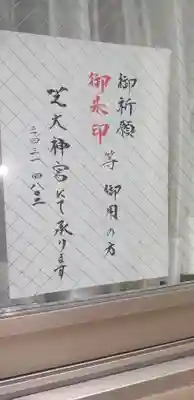 御祈願
御朱印 等 御用の方
芝大神宮にて承ります
三四三一 四八〇二